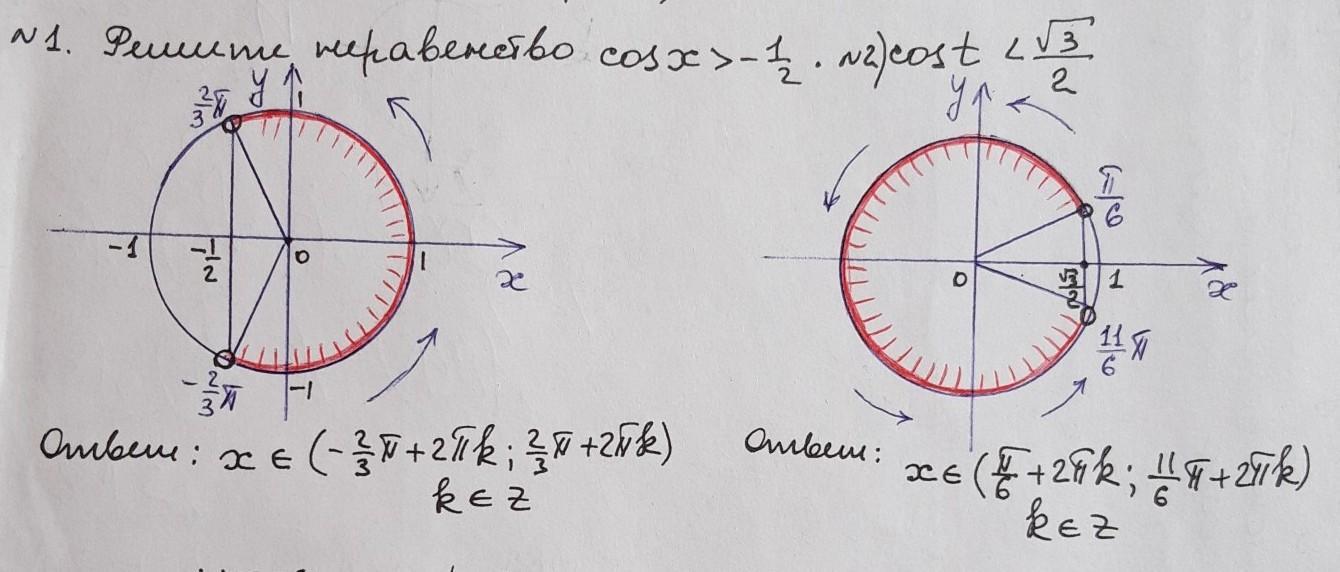 №1. Решите неравенство cosx>-1/2. №2) cost <√3/2
2/3π
y
1
-1
-1/2
0
1
x
-2/3π
-1
y
π/6
0
√3/2
1
x
11/6π
Ответ: x ∈ (-2/3π+2πk; 2/3π+2πk)
k ∈ z
Ответ:
x∈(π/6+2πk; 11/6π+2πk)
k ∈ z